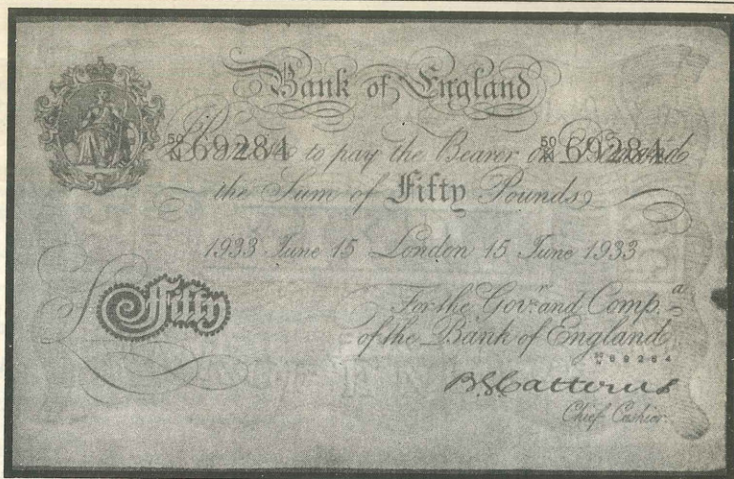 Bank of England
50/N 69284 50/N 69284
to pay the Bearer on Demand
the Sum of Fifty Pounds
1933 June 15 London 15 June 1933
Fifty
For the Govr. and Compa.
of the Bank of England
50/N 69284
B.G. Catterns
Chief Cashier.